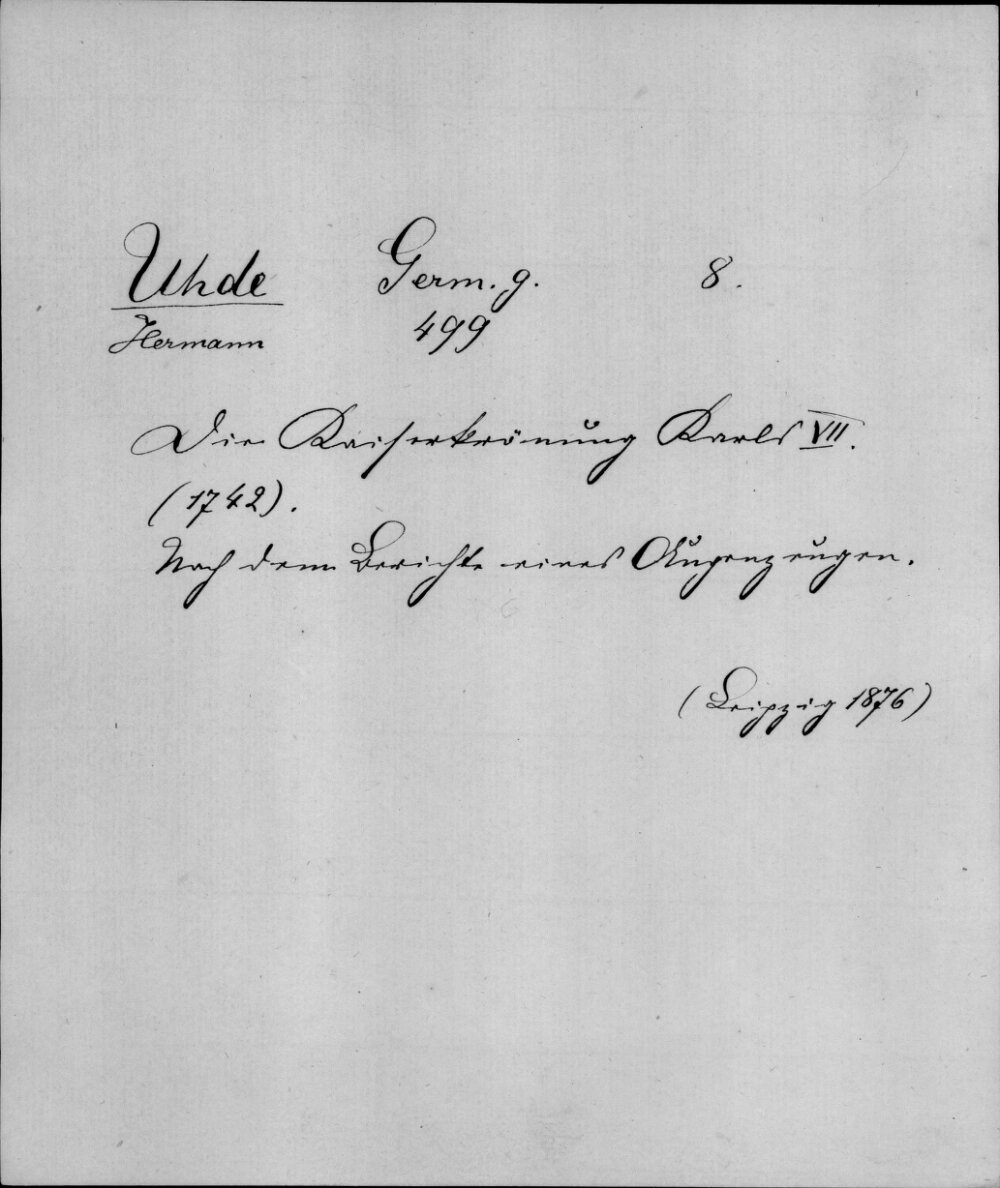 Uhde Germ. g. 8.
Hermann 499
Die Kaiserkrönung Karls VII.
(1742).
Nach dem Berichte eines Augenzeugen.
(Leipzig 1876)